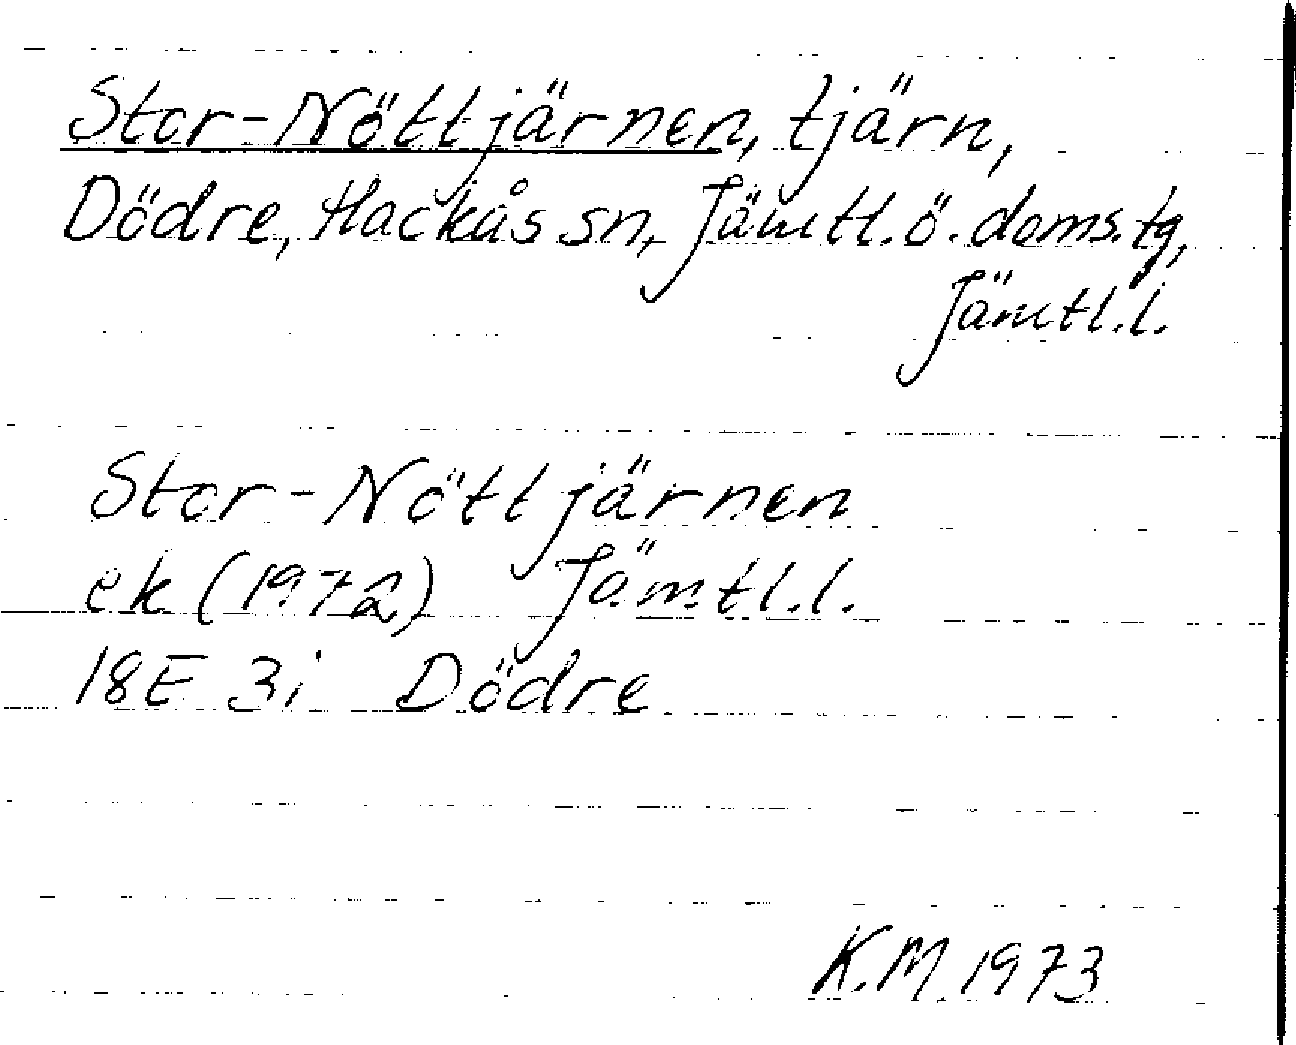 Stor-Nöttjärnen, tjärn,
Dödre, Hackås sn, Jämtl. ö. doms. tg,
Jämtl. l.
Stor-Nöttjärnen
ek (1972) Jämtl. l.
18E 3i Dödre
K.M. 1973